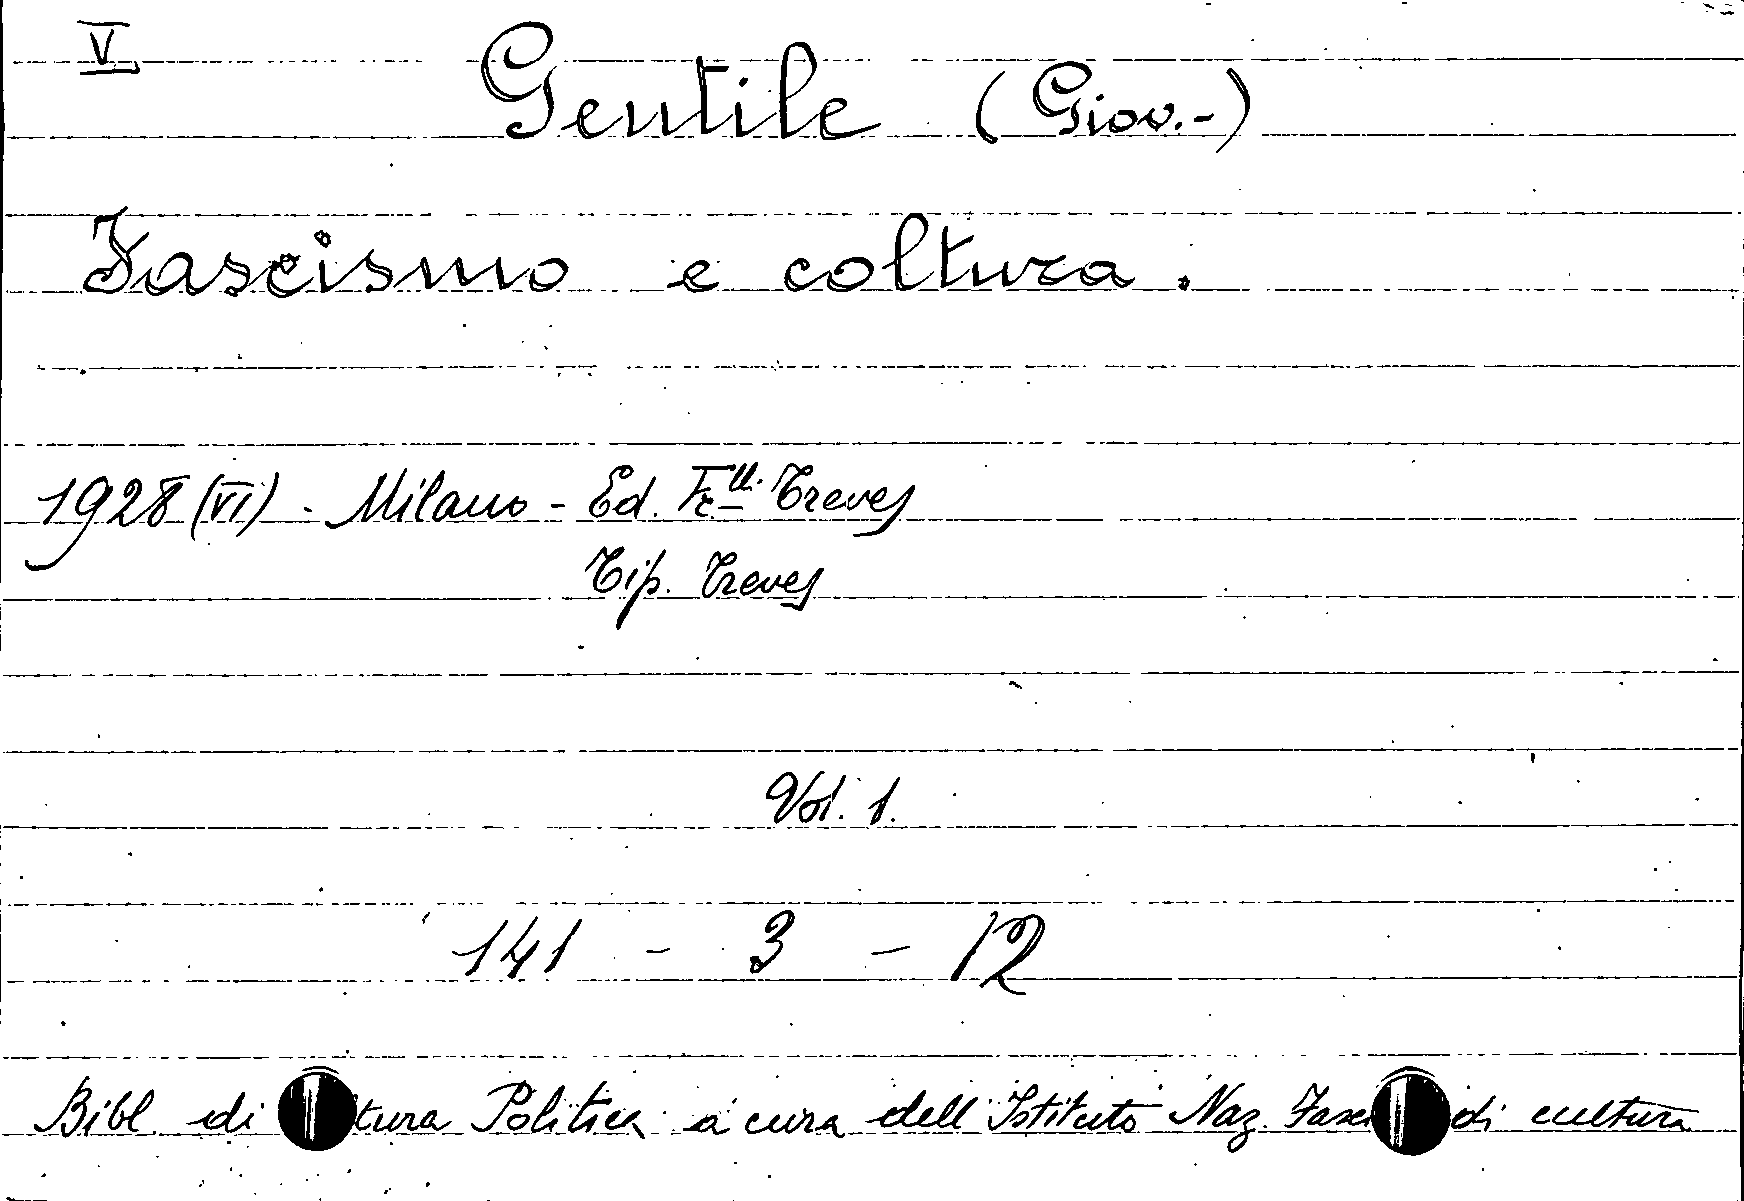 V
Gentile (Giov.-)
Fascismo e coltura.
1928 (VI) - Milano - Ed. F.lli Treves
Tip. Treves
Vol. 1.
141 - 3 - 12
Bibl. di tura Politica a cura dell'Istituto Naz. Fasc di cultura